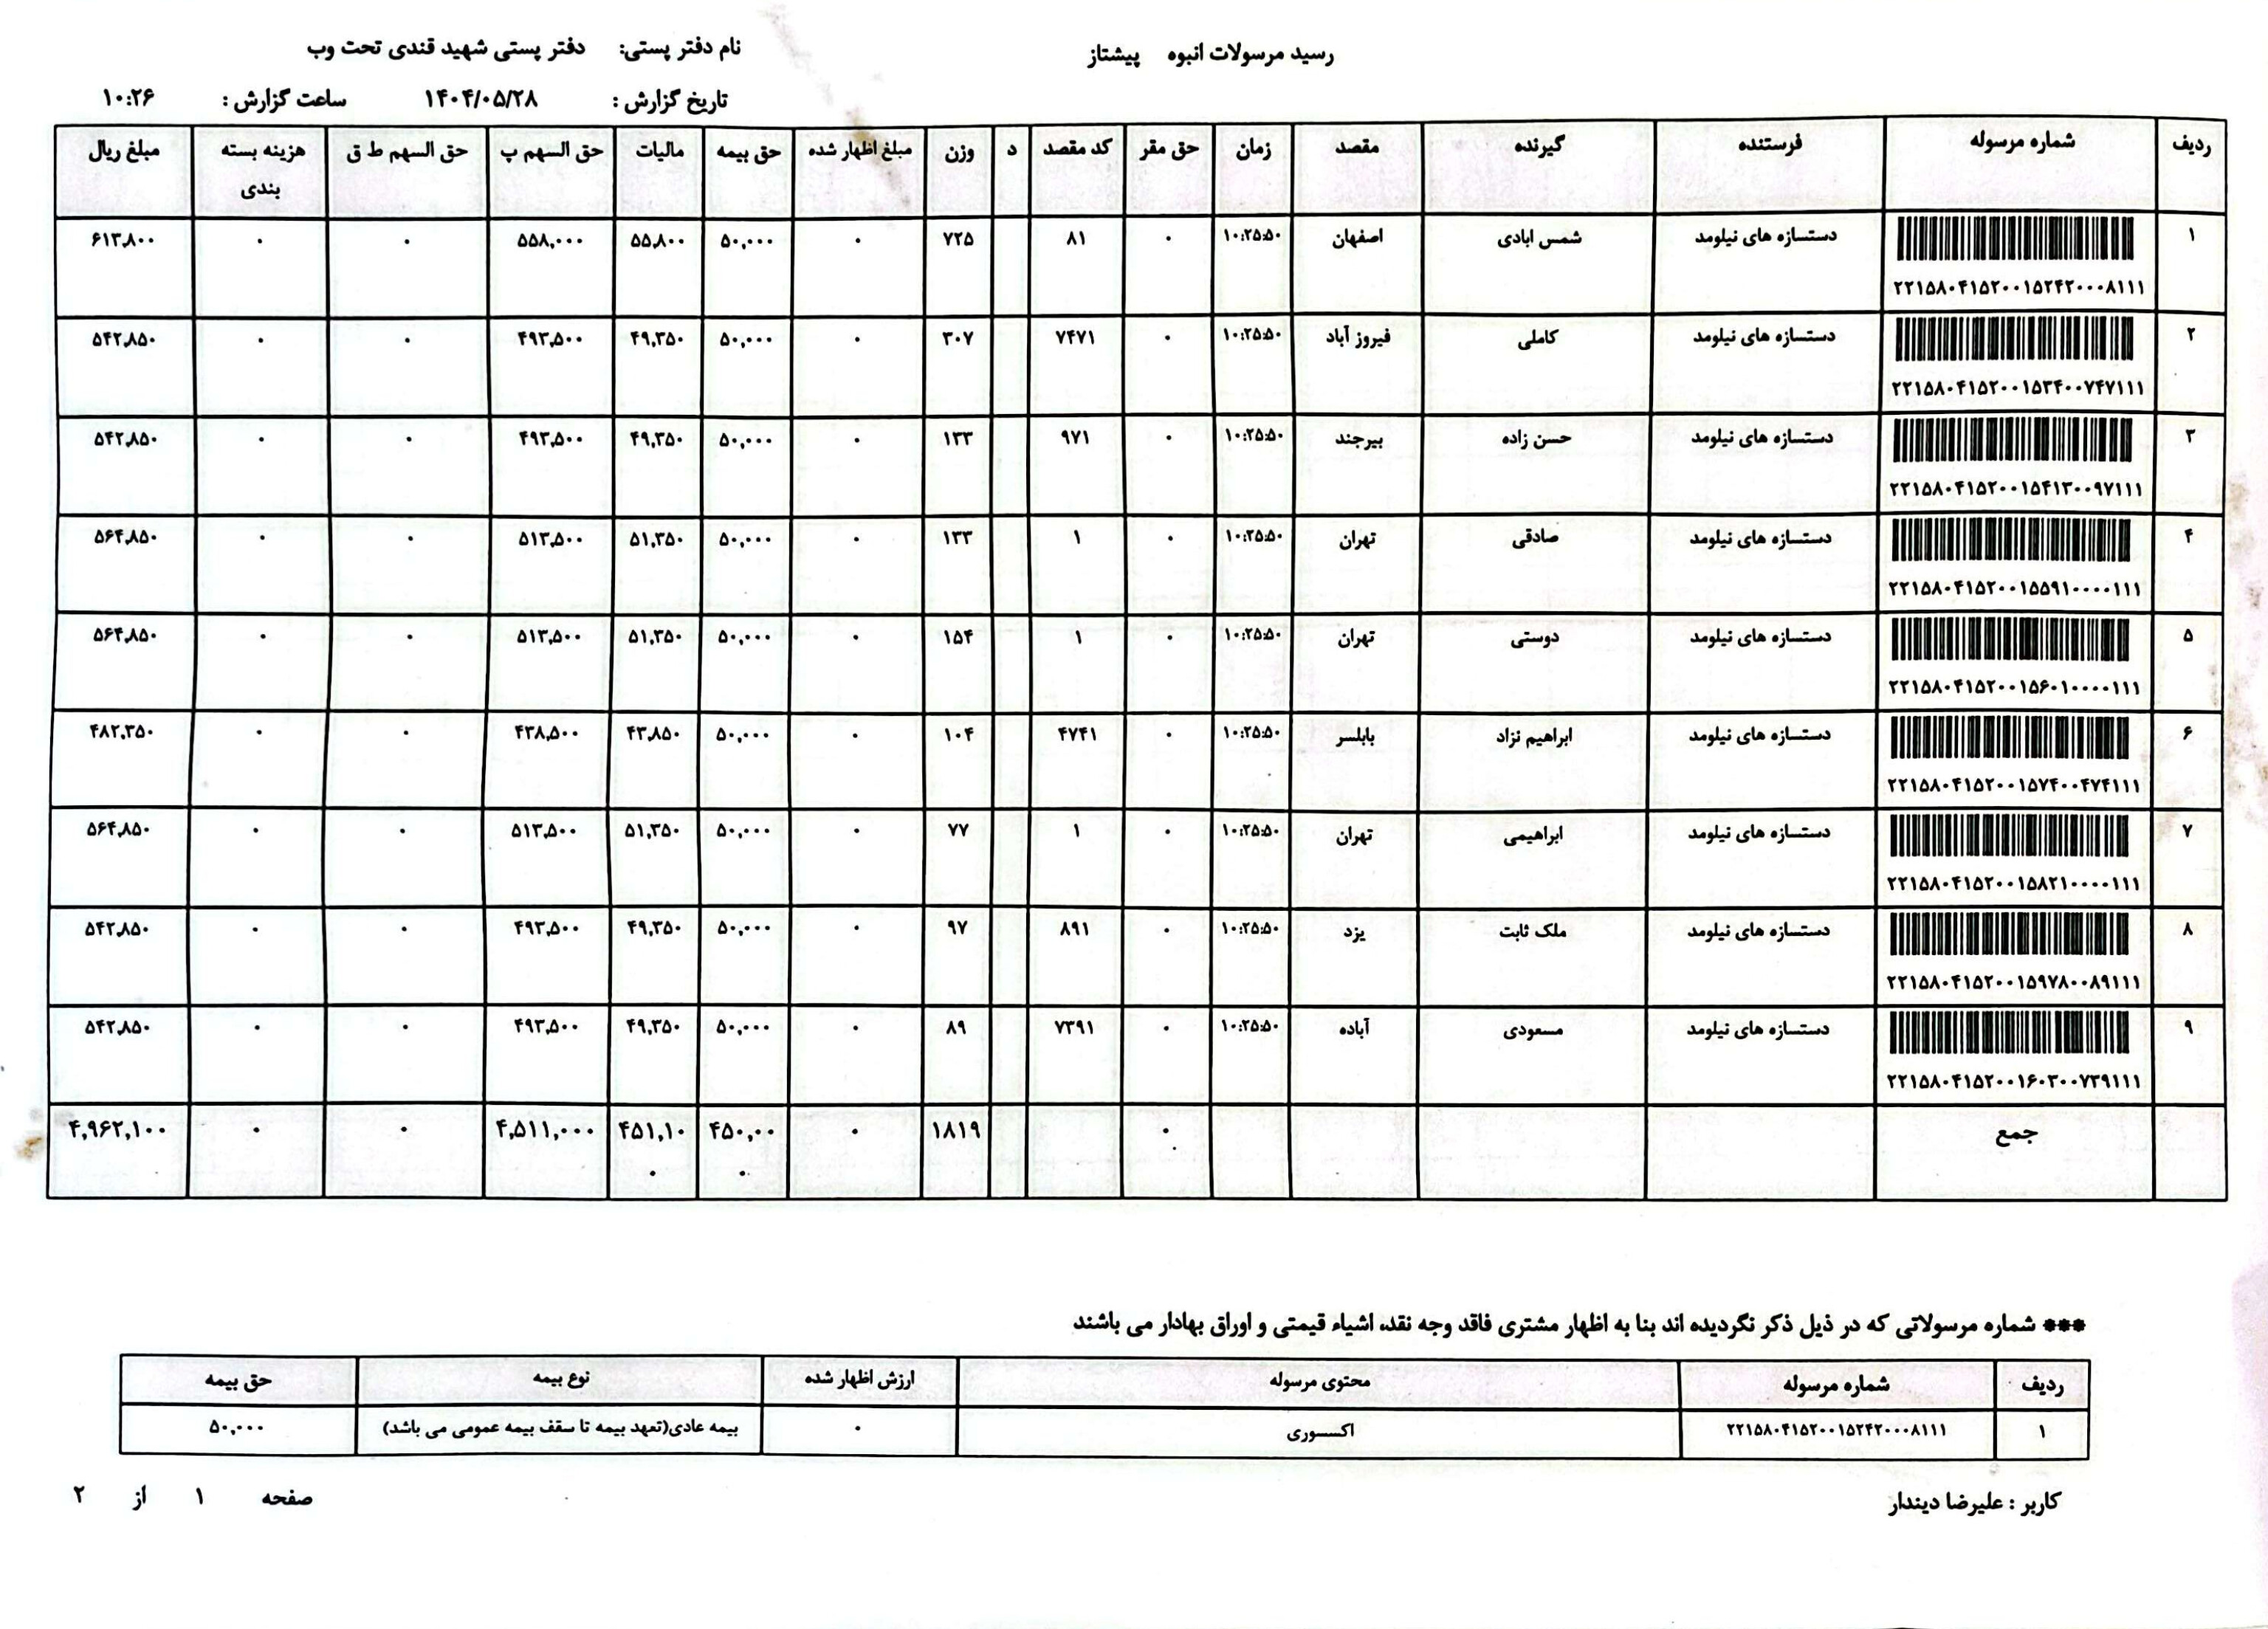 رسید مرسولات انبوه پیشتاز
نام دفتر پستی: دفتر پستی شهید قندی تحت وب
تاریخ گزارش : ۱۴۰۴/۰۵/۲۸ ساعت گزارش : ۱۰:۲۶
ردیف شماره مرسوله فرستنده گیرنده مقصد زمان حق مقر کد مقصد د وزن مبلغ اظهار شده حق بیمه مالیات حق السهم پ حق السهم ط ق هزینه بسته بندی مبلغ ریال
۱ دستسازه های نیلومد شمس ابادی اصفهان ۱۰:۲۵:۵۰ ۰ ۸۱ ۷۲۵ ۰ ۵۰,۰۰۰ ۵۵,۸۰۰ ۵۵۸,۰۰۰ ۰ ۰ ۶۱۳,۸۰۰
۲۲۱۵۸۰۴۱۵۲۰۰۱۵۲۴۲۰۰۰۸۱۱۱
۲ دستسازه های نیلومد کاملی فیروز آباد ۱۰:۲۵:۵۰ ۰ ۷۴۷۱ ۳۰۷ ۰ ۵۰,۰۰۰ ۴۹,۳۵۰ ۴۹۳,۵۰۰ ۰ ۰ ۵۴۲,۸۵۰
۲۲۱۵۸۰۴۱۵۲۰۰۱۵۳۴۰۰۷۴۷۱۱۱
۳ دستسازه های نیلومد حسن زاده بیرجند ۱۰:۲۵:۵۰ ۰ ۹۷۱ ۱۳۳ ۰ ۵۰,۰۰۰ ۴۹,۳۵۰ ۴۹۳,۵۰۰ ۰ ۰ ۵۴۲,۸۵۰
۲۲۱۵۸۰۴۱۵۲۰۰۱۵۴۱۳۰۰۹۷۱۱۱
۴ دستسازه های نیلومد صادقی تهران ۱۰:۲۵:۵۰ ۰ ۱ ۱۳۳ ۰ ۵۰,۰۰۰ ۵۱,۳۵۰ ۵۱۳,۵۰۰ ۰ ۰ ۵۶۴,۸۵۰
۲۲۱۵۸۰۴۱۵۲۰۰۱۵۵۹۱۰۰۰۰۱۱۱
۵ دستسازه های نیلومد دوستی تهران ۱۰:۲۵:۵۰ ۰ ۱ ۱۵۴ ۰ ۵۰,۰۰۰ ۵۱,۳۵۰ ۵۱۳,۵۰۰ ۰ ۰ ۵۶۴,۸۵۰
۲۲۱۵۸۰۴۱۵۲۰۰۱۵۶۰۱۰۰۰۰۱۱۱
۶ دستسازه های نیلومد ابراهیم نژاد بابلسر ۱۰:۲۵:۵۰ ۰ ۴۷۴۱ ۱۰۴ ۰ ۵۰,۰۰۰ ۴۳,۸۵۰ ۴۳۸,۵۰۰ ۰ ۰ ۴۸۲,۳۵۰
۲۲۱۵۸۰۴۱۵۲۰۰۱۵۷۴۰۰۴۷۴۱۱۱
۷ دستسازه های نیلومد ابراهیمی تهران ۱۰:۲۵:۵۰ ۰ ۱ ۷۷ ۰ ۵۰,۰۰۰ ۵۱,۳۵۰ ۵۱۳,۵۰۰ ۰ ۰ ۵۶۴,۸۵۰
۲۲۱۵۸۰۴۱۵۲۰۰۱۵۸۲۱۰۰۰۰۱۱۱
۸ دستسازه های نیلومد ملک ثابت یزد ۱۰:۲۵:۵۰ ۰ ۸۹۱ ۹۷ ۰ ۵۰,۰۰۰ ۴۹,۳۵۰ ۴۹۳,۵۰۰ ۰ ۰ ۵۴۲,۸۵۰
۲۲۱۵۸۰۴۱۵۲۰۰۱۵۹۷۸۰۰۸۹۱۱۱
۹ دستسازه های نیلومد مسعودی آباده ۱۰:۲۵:۵۰ ۰ ۷۳۹۱ ۸۹ ۰ ۵۰,۰۰۰ ۴۹,۳۵۰ ۴۹۳,۵۰۰ ۰ ۰ ۵۴۲,۸۵۰
۲۲۱۵۸۰۴۱۵۲۰۰۱۶۰۳۰۰۷۳۹۱۱۱
جمع ۰ ۱۸۱۹ ۰ ۴۵۰,۰۰۰ ۴۵۱,۱۰۰ ۴,۵۱۱,۰۰۰ ۰ ۰ ۴,۹۶۲,۱۰۰
*** شماره مرسولاتی که در ذیل ذکر نگردیده اند بنا به اظهار مشتری فاقد وجه نقد، اشیاء قیمتی و اوراق بهادار می باشند
ردیف شماره مرسوله محتوی مرسوله ارزش اظهار شده نوع بیمه حق بیمه
۱ ۲۲۱۵۸۰۴۱۵۲۰۰۱۵۲۴۲۰۰۰۸۱۱۱ اکسسوری ۰ بیمه عادی(تعهد بیمه تا سقف بیمه عمومی می باشد) ۵۰,۰۰۰
کاربر : علیرضا دیندار صفحه ۱ از ۲